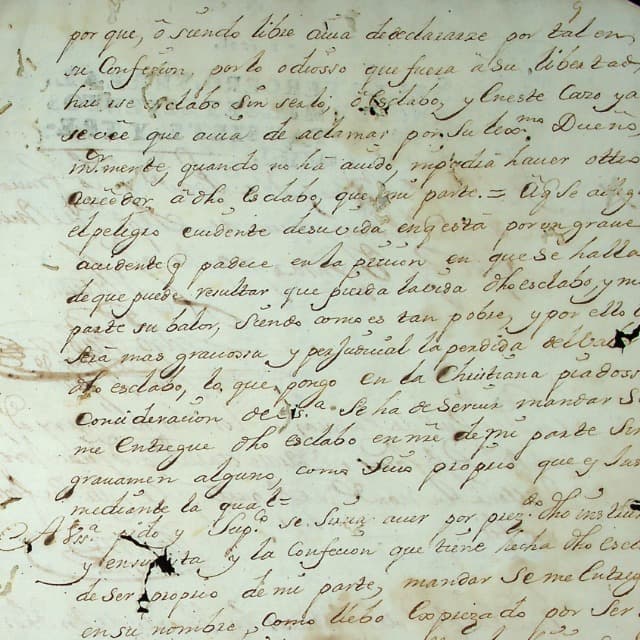 por que, ô siendo libre avia de declararze por tal en
su Confecion, por lo odiosso que fuera â su libertad
hacerse esclabo sin serlo; ô Esclabo, y en este Cazo ya
se vee que avia de aclamar por su lexmo. Dueño
mayormente, quando no ha avido, ni podia haver ottro
acreedor â dho Esclabo, que mi parte. = âq. se aleg
el peligro evidente de su vida en q está por un grave
accidente q padece en la pricion en que se halla
de que puede resultar que pierda la vida dho esclabo, y mi
parte su balor, siendo como es tan pobre, y por ello
seria mas gravossa y perjudicial la perdida del
dho esclabo, lo que pongo en la Christiana piadoss
Concideracion de Vsa. se ha de servir mandar se
me Entregue dho esclabo en nre de mi parte sin
gravamen alguno, como suio propio que es
mediante la qual
A Vsa. pido y Supco. se sirva aver por prezdo. dho
y en su vista y la Confecion que tiene hecha dho escl
de ser propio de mi parte, mandar se me Entreg
en su nombre, Como llebo Exprezado por ser